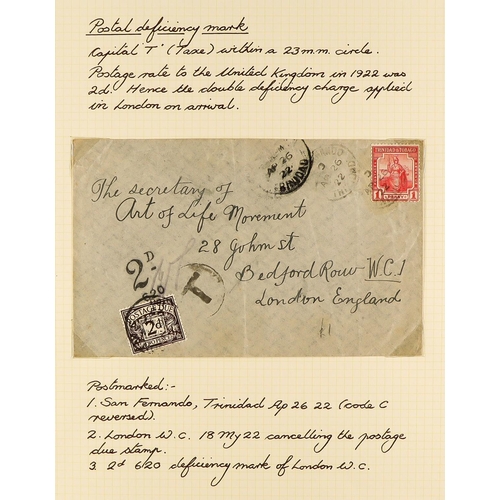 Postal deficiency mark
Capital 'T' (Taxe) within a 23 m.m. circle.
Postage rate to the United Kingdom in 1922 was
2d. Hence the double deficiency charge applied
in London on arrival.
AP 26
22
TRINIDAD
AP 26
22
TRINIDAD & TOBAGO
1 PENNY 1
The secretary of
Art of Life Movement
28 Gohm st
Bedford Rouw W.C.1
London England
2D.
T
POSTAGE DUE
2d
TWO PENCE
Postmarked:-
1. San Fernando, Trinidad Ap 26 22 (code C
reversed).
2. London W.C. 18 My 22 cancelling the postage
due stamp.
3. 2d 620 deficiency mark of London W.C.